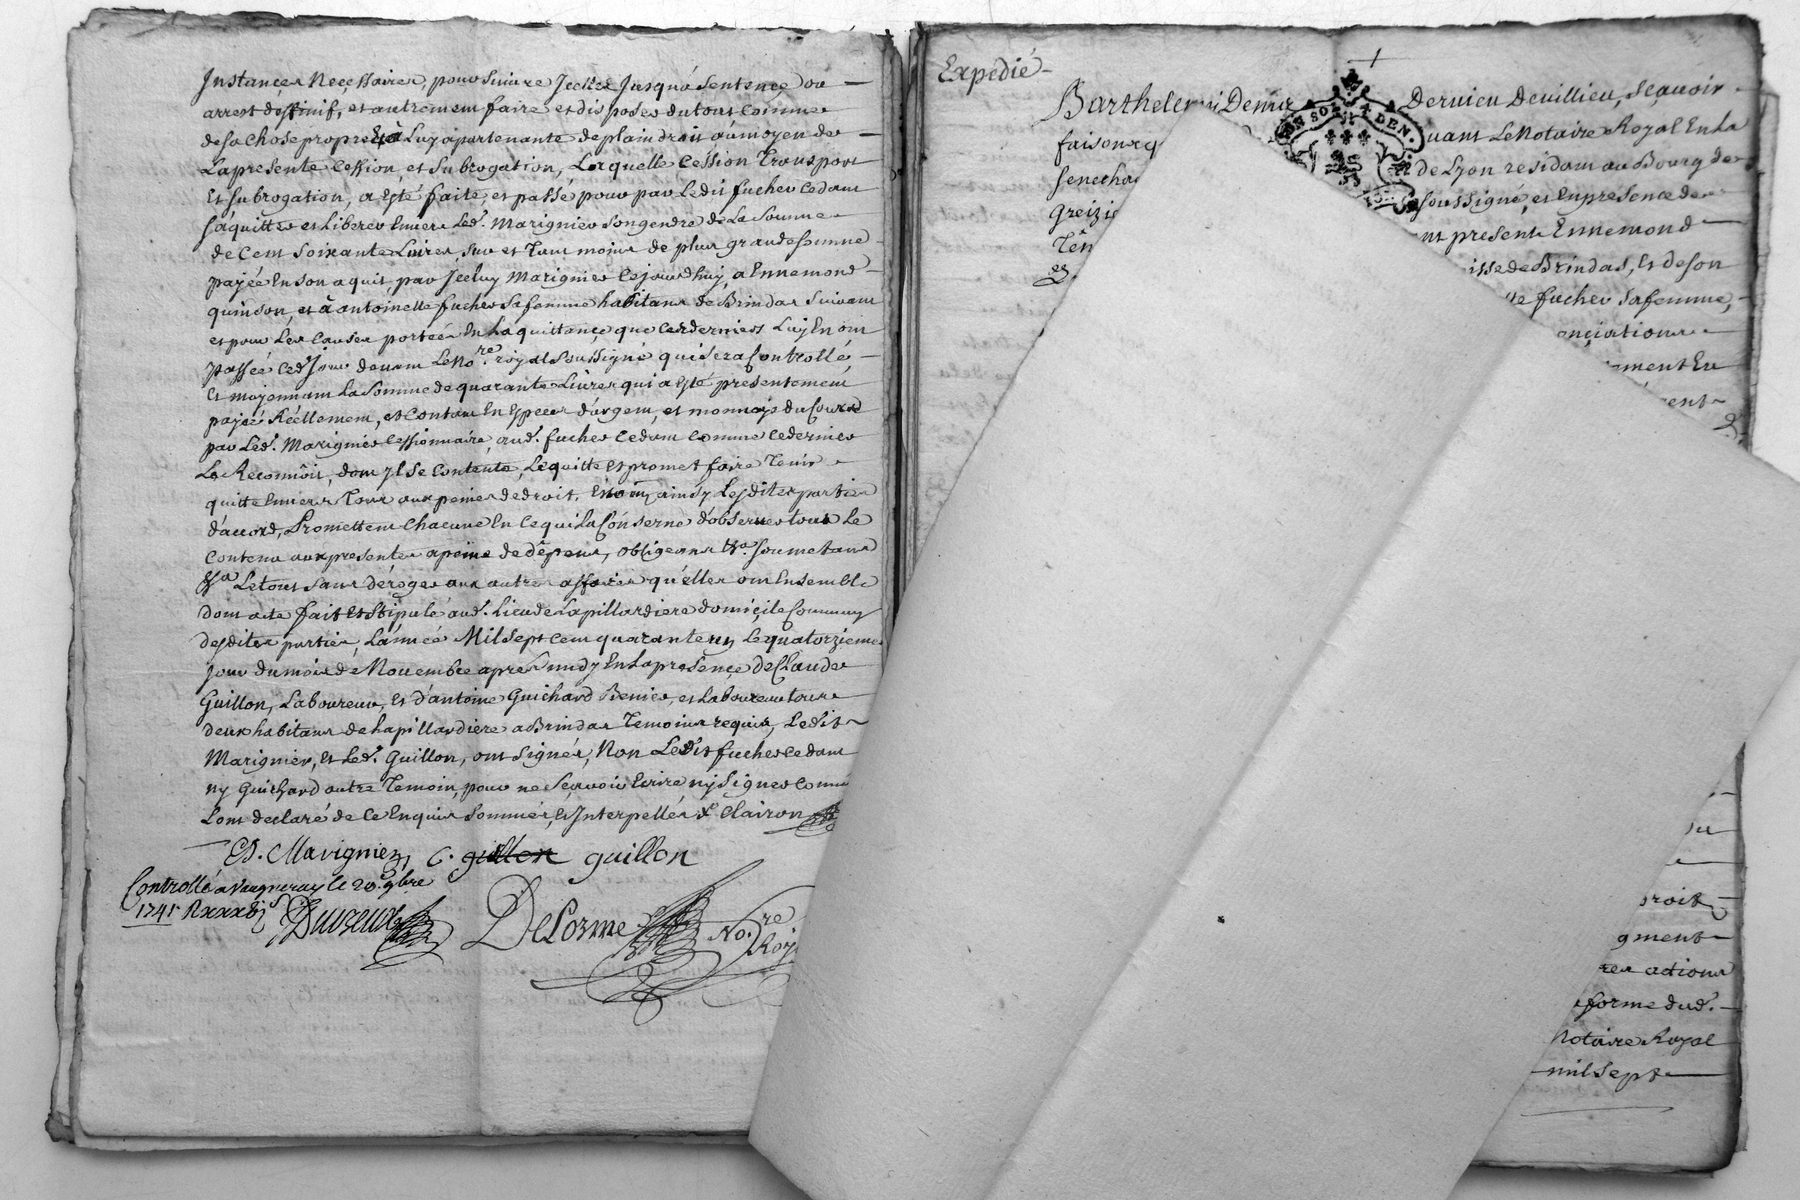 Instances Necessaires, poursuivre Jcelles Jusqu'a sentence ou —
arrest deffinif, et autrement faire et disposer du tout comme
de sa chose propre Et à Luy apartenante de plain droit au moyen de —
La presente Cession, et subrogation, Laquelle Cession Transport
Et subrogation, a esté faite, et passé pour par Ledit fucher cedant
s'aquitter et Liberer Envers Led. Marignier son gendre de La somme
de Cent soixante Livres, sur et Tant moins de plus grande somme
payée En son aquit, par Jceluy Marignier Cejourdhuy, a Ennemond —
quinson, et à antoinette fucher sa femme habitans de Brindas suivant
et pour Les Causes portées En La quittance que Ces derniers Luy En ont
passée Ced. Jour devant Le No.re royal Soussigné qui sera Controllé —
Et moyennant La Somme de quarante Livres qui a esté presentement
payée Réellement, et Contant En Especes d'argent, et monnoye du Cours
par Led. Marignier Cessionnaire aud. fucher Cedant Comme Ce dernier
Le Reconnoit, dont Jl se Contente, Le quitte et promet faire Tenir
quitte Envers Tous aux peines de droit, ainsy Lesdites parties
d'acord, Promettent Chacune En Ce qui La Conserne d'observer tout Le
Contenu aux presentes a peine de dépens, obligeans &a. soumetans
&a Le tout sans déroger aux autres affaires qu'elles ont Ensemble
dont acte fait Et Stipulé aud. Lieu de Lapillardiere domicile Commun
desdites parties, L'année Mil sept cent quarante un Le quatorzieme
Jour du mois de Novembre apres midy En La presence de Claude
Guillon, Laboureur, Et d'antoine Guichard Benier, et Laboureur tous
deux habitans de Lapillardiere a Brindas Temoins requis, Ledit
Marignier, et Led. Guillon, ont signés, Non Ledit fucher cedant
ny Guichard autre Temoin, pour ne Sçavoir Ecrire ny Signer Comme
Lont declaré de Ce Enquis sommés, et Interpellés
Marignier, C. guillon guillon
Controllé a Vaugneray le 20.e 9bre
1741
DeLorme No.re
Roy
Expedié
Barthelemi Denis Dervieu Devillieu, Sçavoir
faisons q uant Le Notaire Royal En La
senecha de Lyon residant au Bourg de
Greizie soussigné, et En presence de
Tên nt present Ennemond
isse de Brindas, Et de son
te fucher sa femme,
onciations
ement En
ent
roit
gment
res actions
forme dud.
Notaire Royal
mil Sept